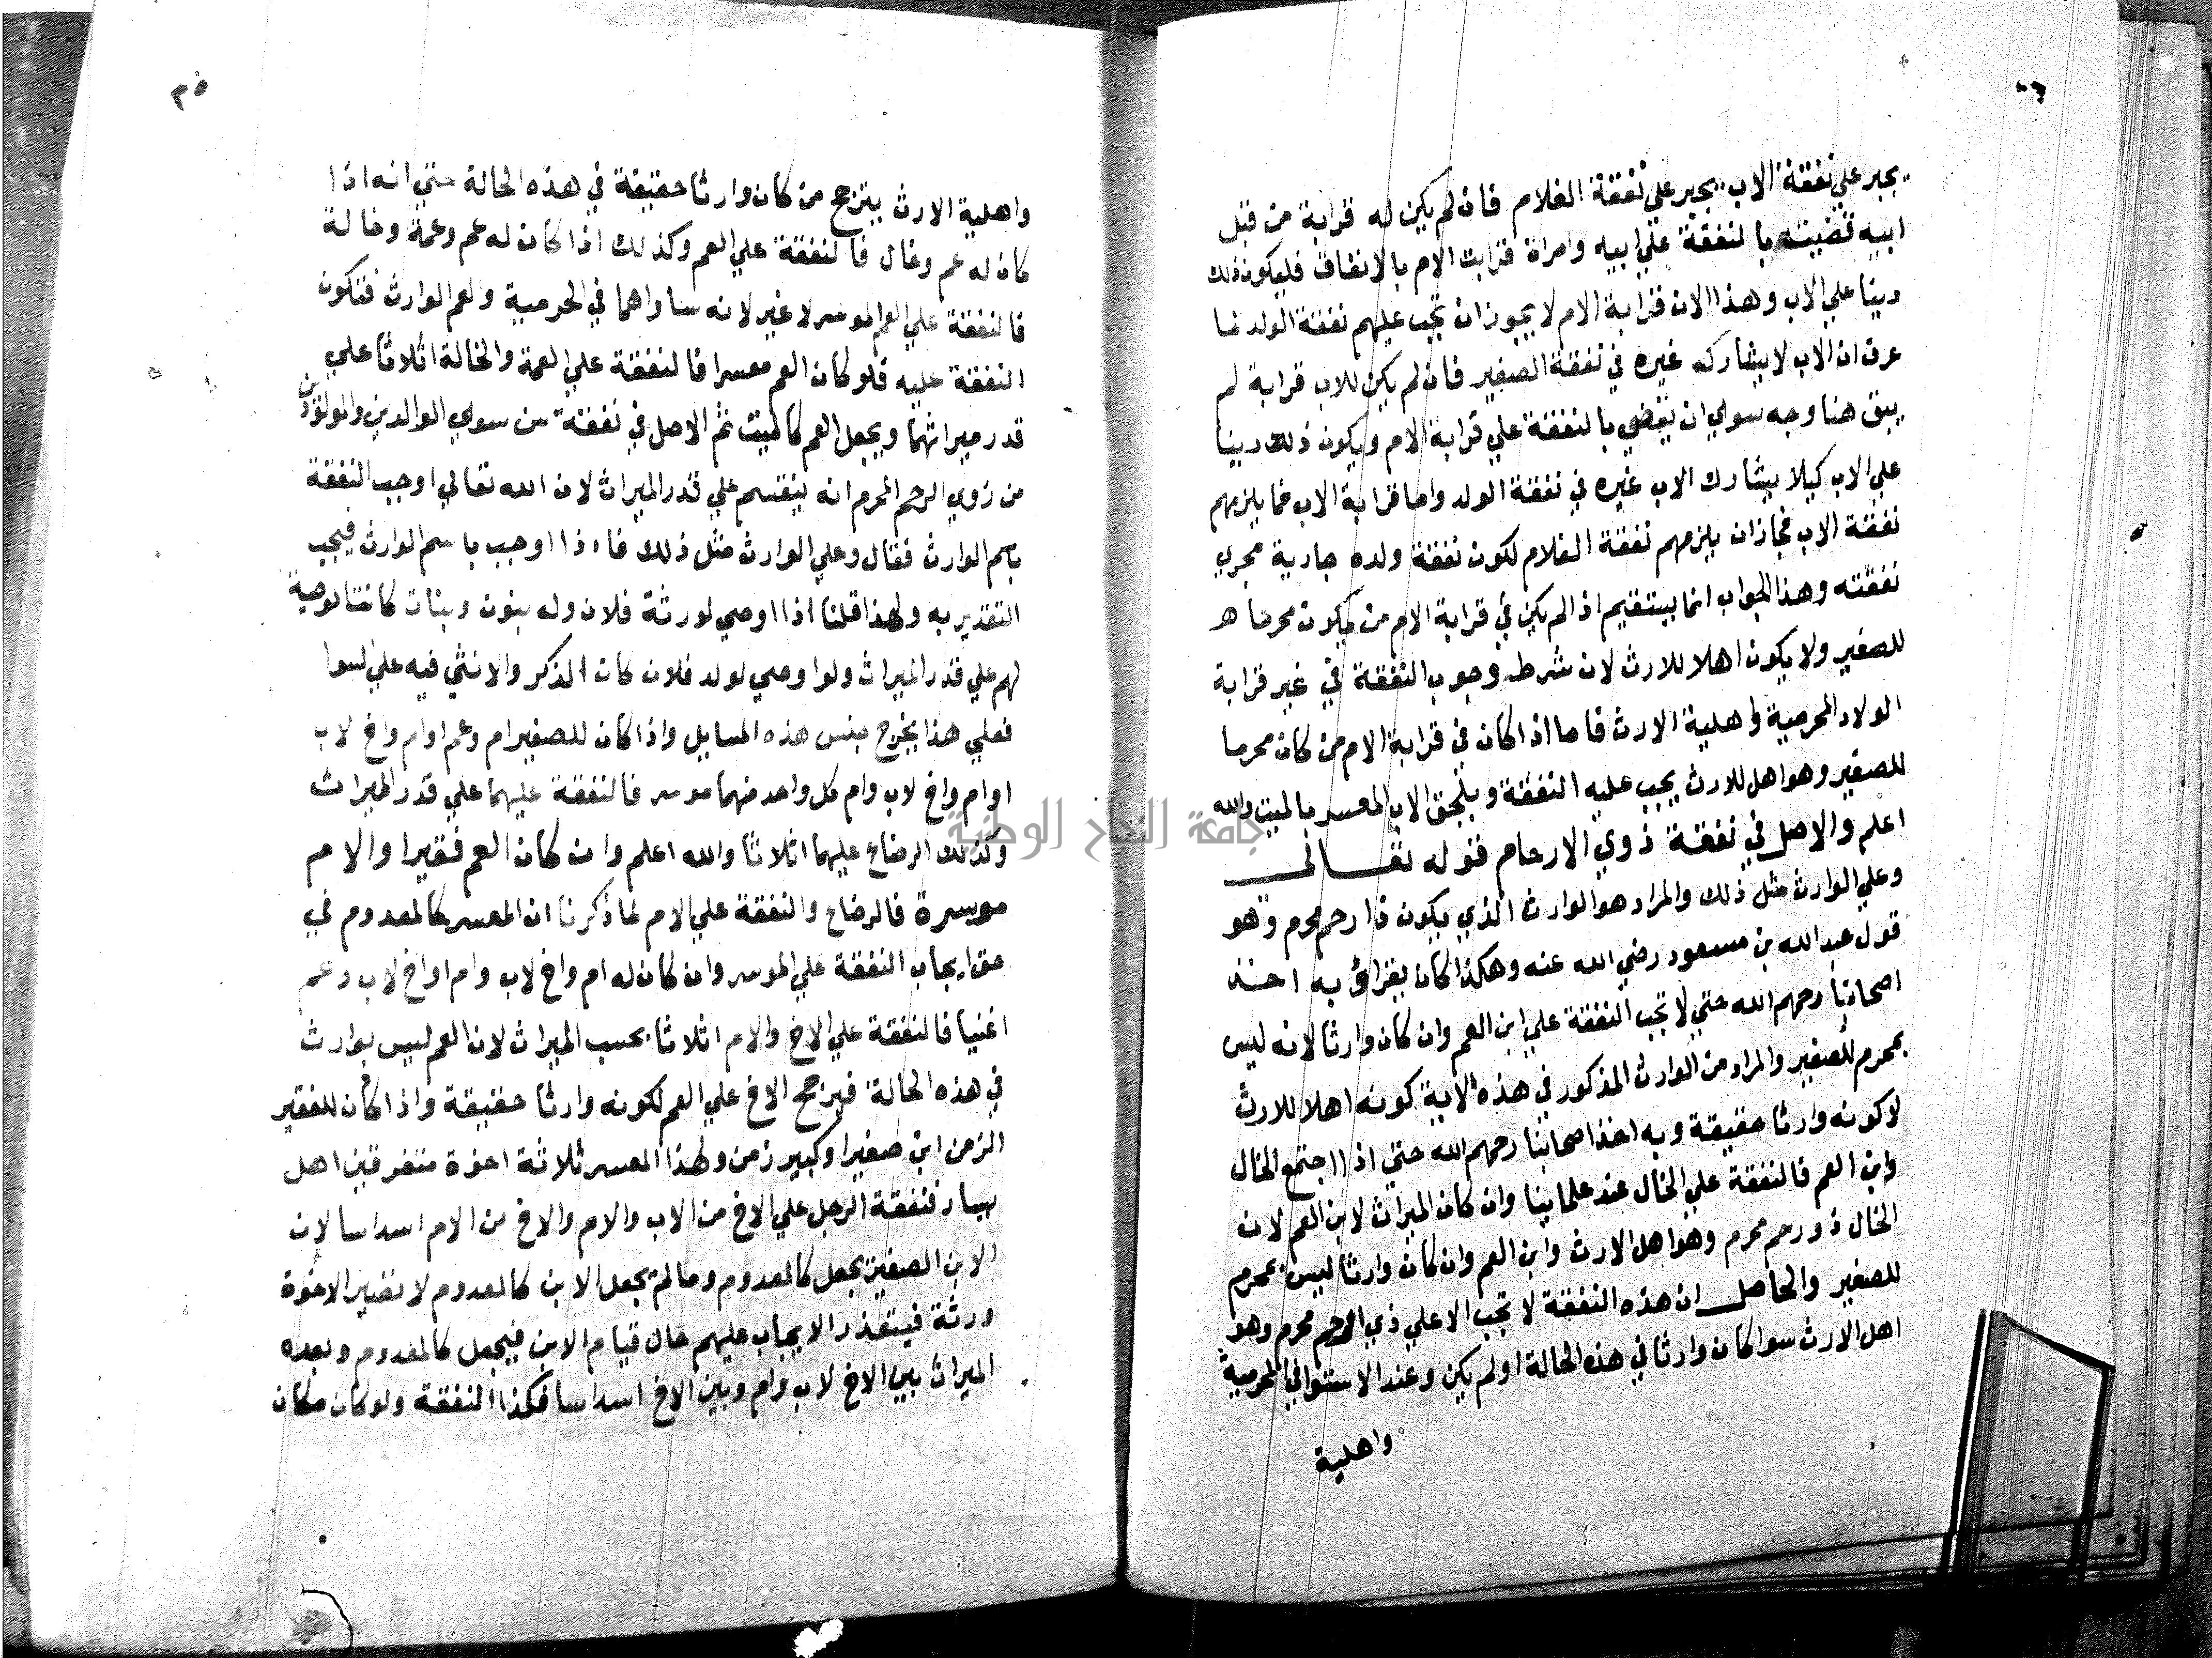 يجبر علي نفقة الاب يجبر علي نفقة الغلام فان لم يكن له قرابة من قبل
ابيه قضيت بالنفقة علي ابيه وامرت قرابت الام بالانفاق فيكون ذلك
دينا علي الاب وهذا لان قرابة الام لا يجوز ان تجب عليهم نفقة الولد لما
عرف ان الاب لا يشاركه غيره في نفقة الصغير فان لم يكن للاب قرابة لم
يبق هنا وجه سوي ان يقضي بالنفقة علي قرابة الام ويكون ذلك دينا
علي الاب كيلا يشارك الاب غيره في نفقة الولد واما قرابة الاب فما يلزمهم
نفقة الاب فجاز ان يلزمهم نفقة الغلام لكون نفقة ولده جارية مجري
نفقته وهذا الجواب انما يستقيم اذ الم يكن في قرابة الام من يكون محرما
للصغير ولا يكون اهلا للارث لان شرط وجوب النفقة في غير قرابة
الولاد المحرمية واهلية الارث فاما اذا كان في قرابة الام من كان محرما
للصغير وهو اهل للارث يجب عليه النفقة ويلحق الاب المعسر بالميت والله
اعلم والاصل في نفقة ذوي الارحام قوله تعالي
وعلي الوارث مثل ذلك والمراد هو الوارث الذي يكون ذا رحم محرم وهو
قول عبد الله بن مسعود رضي الله عنه وهكذا كان يقرا وبه اخذ
اصحابنا رحمهم الله حتي لا تجب النفقة علي ابن العم وان كان وارثا لانه ليس
بمحرم للصغير والمراد من الوارث المذكور في هذه الاية كونه اهلا للارث
لا كونه وارثا حقيقة وبه اخذ اصحابنا رحمهم الله حتي اذا اجتمع الخال
وابن العم فالنفقة علي الخال عند علماينا وان كان الميراث لابن العم لان
الخال ذو رحم محرم وهو اهل الارث وابن العم وان كان وارثا ليس بمحرم
للصغير والحاصل ان هذه النفقة لا تجب الا علي ذي الرحم محرم وهو
اهل الارث سوا كان وارثا في هذه الحالة اولم يكن وعند الاستوا في المحرمية
واهلية
٣٥
واهلية الارث يترجح من كان وارثا حقيقة في هذه الحالة حتي انه اذا
كان له عم وخال فالنفقة علي العم وكذلك اذا كان له عم وعمة وخالة
فالنفقة علي العم الموسر لا غير لانه ساواهما في الحرمية والعم الوارث فتكون
النفقة عليه فلو كان العم معسرا فالنفقة علي العمة والخالة اثلاثا علي
قدر ميراثهما ويجعل العم كالميت ثم الاصل في نفقة من سوي الوالدين والمولودين
من ذوي الرحم المحرم انه ينقسم علي قدر الميراث لان الله تعالي اوجب النفقة
باسم الوارث فقال وعلي الوارث مثل ذلك فاذا اوجب باسم الوارث فيجب
التقدير به ولهذا قلنا اذا اوصي لورثة فلان وله بنون وبنات كانت الوصية
لهم علي قدر الميراث ولو اوصي لولد فلان كان الذكر والانثي فيه علي السوا
فعلي هذا يخرج جنس هذه المسايل واذا كان للصغير ام وعم اوام واخ لاب
اوام واخ لاب وام كل واحد منهما موسر فالنفقة عليهما علي قدر الميراث
وكذلك الرضاع عليهما اثلاثا والله اعلم وان كان العم فقيرا والام
موسرة فالرضاع والنفقة علي الام لما ذكرنا ان المعسر كالمعدوم في
حق ايجاب النفقة علي الموسر وان كان له ام واخ لاب وام او اخ لاب وعم
اغنيا فالنفقة علي الاخ والام اثلاثا بحسب الميراث لان العم ليس بوارث
في هذه الحالة فيرجح الاخ علي العم لكونه وارثا حقيقة واذا كان للفقير
الزمن ابن صغير اوكبير زمن ولهذا المعسر ثلاثة اخوة متفرقين اهل
يسار فنفقة الرجل علي الاخ من الاب والام والاخ من الام اسداسا لان
الابن الصغير يجعل كالمعدوم وما لم يجعل الابن كالمعدوم لا تصير الاخوة
ورثة فيتعذر الايجاب عليهم حال قيام الابن فيجعل كالمعدوم وبعده
الميراث بين الاخ لاب وام وبين الاخ اسداسا فكذا النفقة ولو كان مكان
جامعة النجاح الوطنية